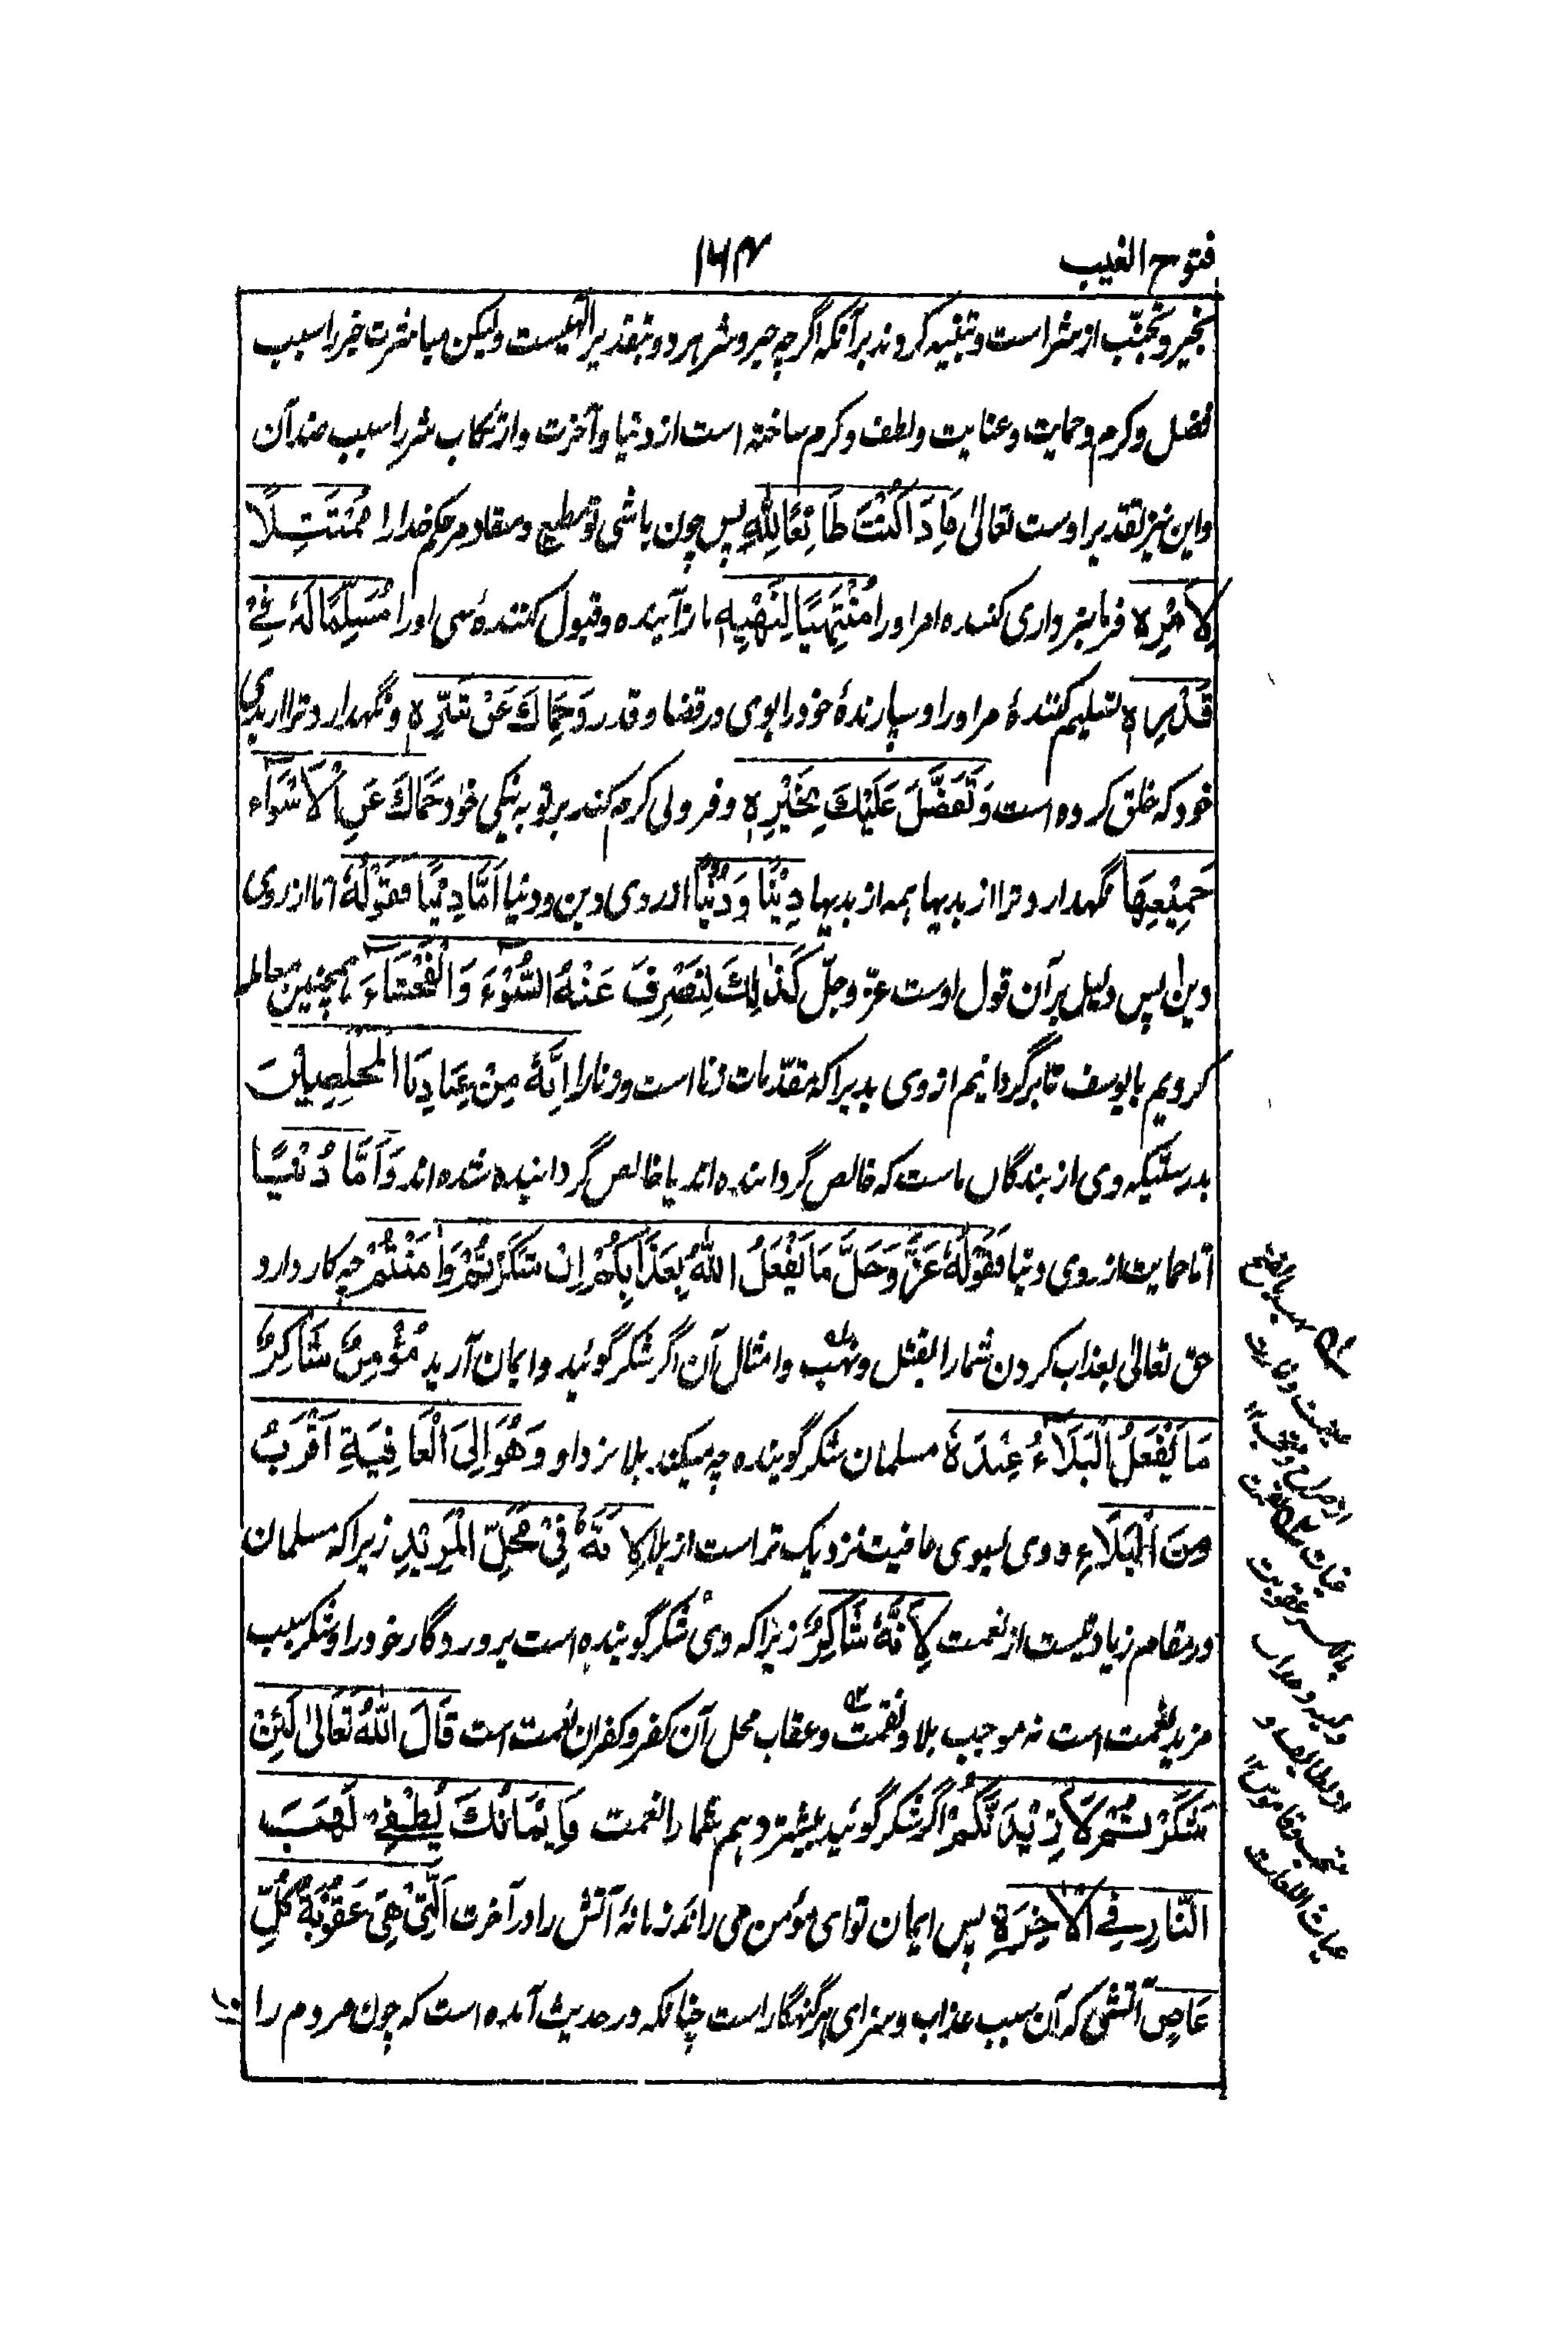 فتوح الغیب
۱۶۴
بخیر و تجنّب از شر است و تنبیه کردند برآنکه اگرچه خیر و شر هر دو بتقدیر الٰهیست ولیکن مباشرت خیر را سبب
فضل و کرم و حمایت و عنایت و لطف و کرم ساخته است از دنیا و آخرت و ارتکاب شر را سبب ضد آن
و این نیز تقدیر اوست تعالیٰ فَإِذَا كُنْتَ طَائِعًا لِلّٰهِ پس چون باشی تو مطیع و منقاد مر حکم خدا را مُمْتَثِلًا
لِأَمْرِهٖ فرمانبرداری کننده امر او را مُنْتَهِيًا لِنَهْيِهٖ بازآینده و قبول کننده نهی او را مُسَلِّمًا لَهٗ فِيْ
قَدَرِهٖ تسلیم کنندهٔ مر او را و سپارندهٔ خود را بوی در قضا و قدر وَحَمَاكَ عَنْ شَرِّهٖ و نگهدارد ترا از بدی
خود که خلق کرده است وَتَفَضَّلَ عَلَيْكَ بِخَيْرِهٖ و فزونی کرم کند بر تو به نیکی خود حَمَاكَ عَنِ الْأَسْوَاءِ
جَمِيْعِهَا نگهدارد ترا از بدیها همه از بدیها دِيْنًا وَدُنْيًا از روی دین و دنیا أَمَّا دِيْنًا فَقَوْلُهٗ اما از روی
دین پس دلیل برآن قول اوست عزّ و جلّ كَذٰلِكَ لِنَصْرِفَ عَنْهُ السُّوْءَ وَالْفَحْشَاءَ همچنین معامله
کردیم با یوسف تا برگردانیم از وی بدیرا که مقدّمات زنا است و زنا را إِنَّهٗ مِنْ عِبَادِنَا الْمُخْلَصِيْنَ
بدرستیکه وی از بندگان ماست که خالص گردانیده اند یا خالص گردانیده شده اند وَأَمَّا دُنْيًا
اما حمایت از روی دنیا فَقَوْلُهٗ عَزَّ وَجَلَّ مَا يَفْعَلُ اللّٰهُ بِعَذَابِكُمْ إِنْ شَكَرْتُمْ وَاٰمَنْتُمْ چه کار دارد
حق تعالیٰ بعذاب کردن شما را بقتل و نهب و امثال آن اگر شکر گوئید و ایمان آرید مُؤْمِنٌ شَاكِرٌ
مَا يَفْعَلُ الْبَلَاءُ عِنْدَهٗ مسلمان شکر گوینده چه میکند بلا نزد او وَهُوَ إِلَى الْعَافِيَةِ أَقْرَبُ
مِنَ الْبَلَاءِ و وی بسوی عافیت نزدیک تر است از بلا لِأَنَّهٗ فِيْ مَحَلِّ الْمَزِيْدِ زیرا که مسلمان
در مقام زیادتیست از نعمت لِأَنَّهٗ شَاكِرٌ زیرا که وی شکر گوینده است پروردگار خود را و شکر سبب
مزید نعمت است نه موجب بلا و نقمت و عقاب محل آن کفر و کفران نعمت است قَالَ اللّٰهُ تَعَالىٰ لَئِنْ
شَكَرْتُمْ لَأَزِيْدَنَّكُمْ اگر شکر گوئید بیشتر دهم شما را نعمت فَإِيْمَانُكَ يُطْفِيْ لَهَبَ
النَّارِ فِي الْاٰخِرَةِ پس ایمان تو ای مؤمن می راند زبانهٔ آتش را در آخرت الَّتِيْ هِيَ عَقُوْبَةُ كُلِّ
عَاصٍ آتشی که آن سبب عذاب و سزای هر گنهگار است چنانکه در حدیث آمده است که چون مردم را